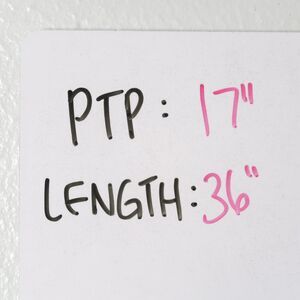 PTP: 17"
LENGTH: 36"